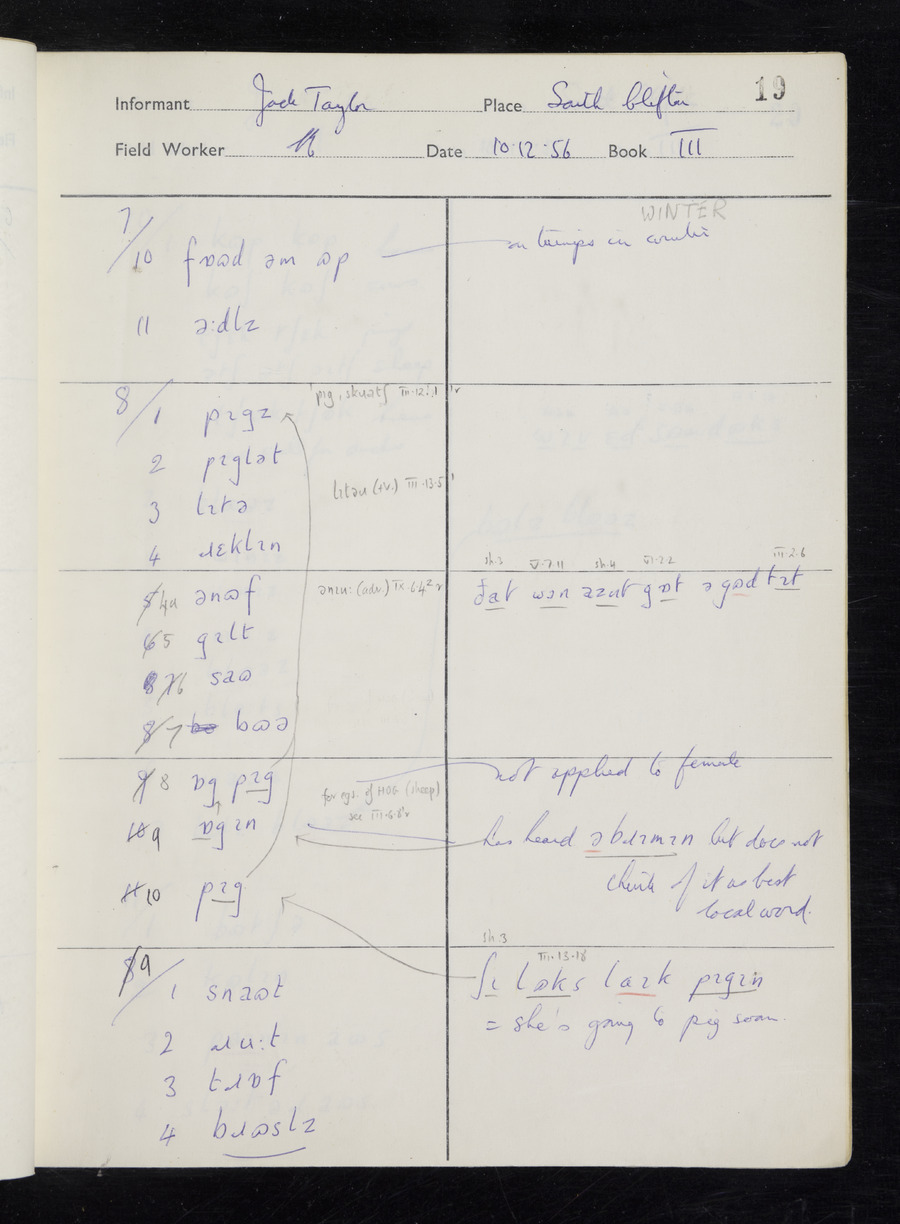 19
Informant Jack Taylor Place South Clifton
Field Worker Date 10.12.56 Book III
WINTER
7/10 fɒʊd əm ʊp on turnips in winter
11 əːdlɪ
pɪg, skɹat∫ III.12.
8/1 pɪgz
2 pɪglət
lɪtəu (+v.) III.13.5
3 lɪtə
4 ɹɛklɪn
sh.3 V.7.11 sh.4 VI.2.2 III.2.6
4a ənʊf ənɪuː (adv.) IX.6.4² v ðat wɒn gɒt ə gʊd tɪt
5 gɪlt
6 saʊ
8/7 bʊə
8 ɒg pɪg not applied to female
for egs. of HOG (sheep)
see III.6.8v
9 ɒgɪn has heard əbɹɪmɪn but does not
think of it as best
10 pɪg local word.
sh.3
8/9 III.13.18
1 snaʊt ʃɪ lʊks laɪk pɪgɪn
= she's going to pig soon.
2 ɹuːt
3 tɹɒf
4 bɹʊslz